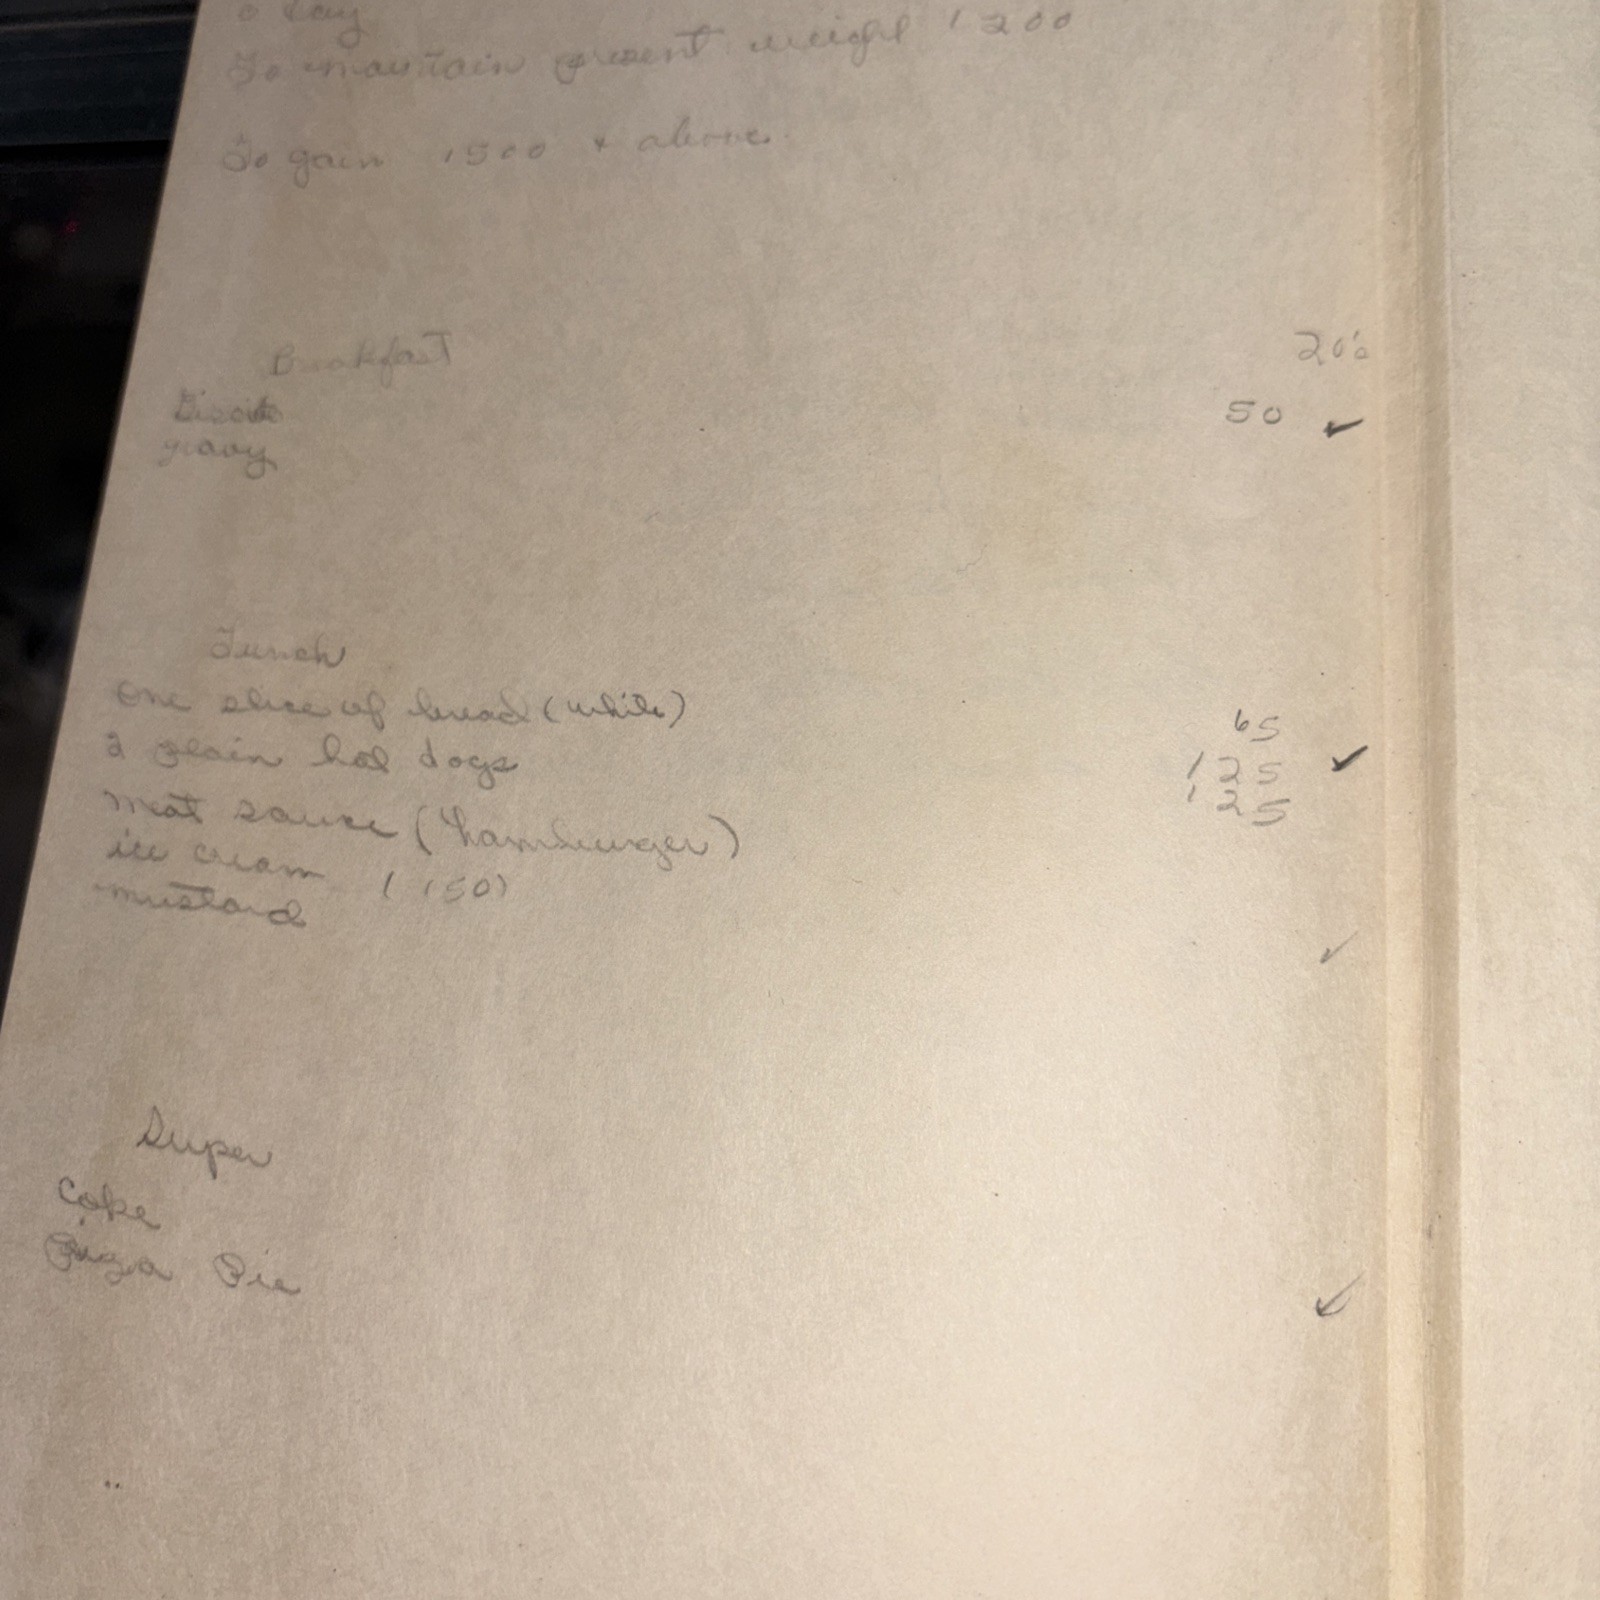 a day
To maintain present weight 1200
To gain 1500 + above.
Breakfast 20%
50 ✓
gravy
Lunch
one slice of bread (white) 65
2 plain hot dogs 125 ✓
meat sauce (hamburger) 125
ice cream (150)
mustard
✓
Super
Coke
Pizza Pie
✓